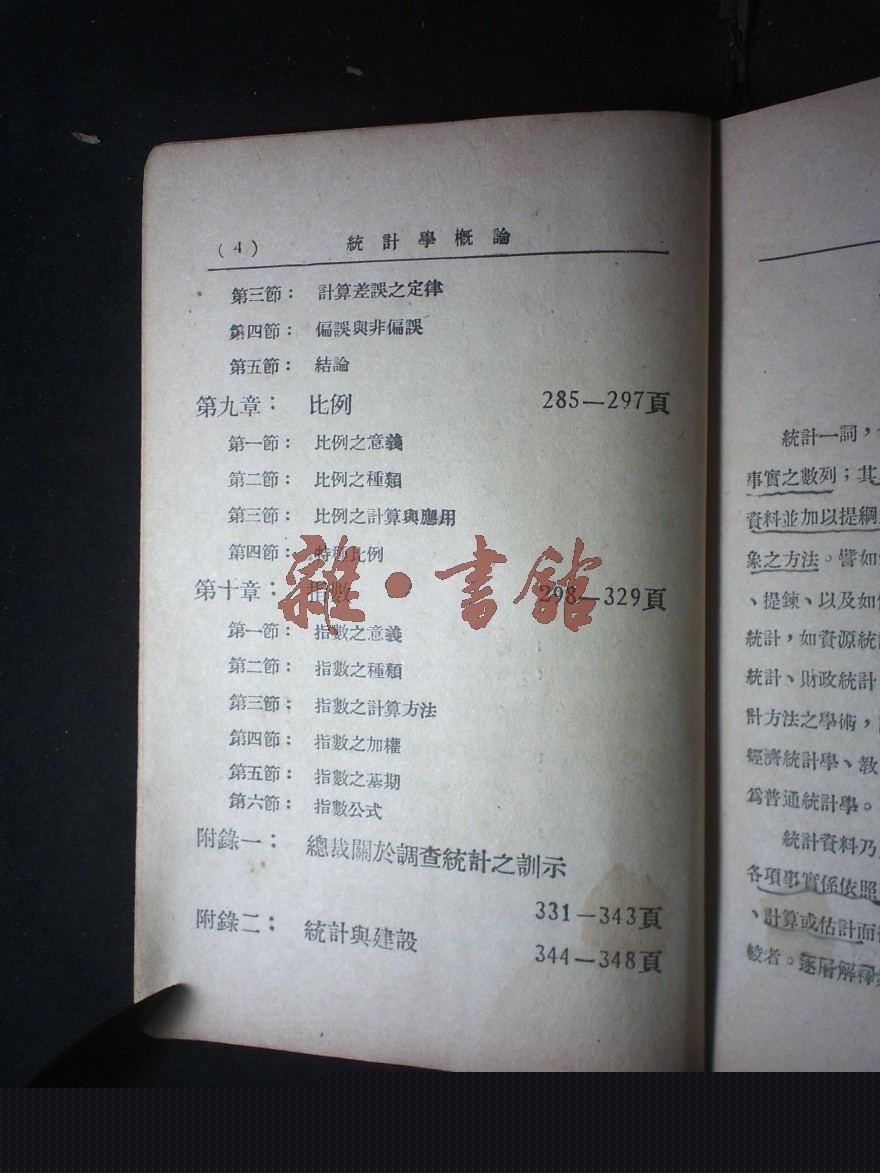 (4) 統計學概論
第三節： 計算差誤之定律
第四節： 偏誤與非偏誤
第五節： 結論
第九章： 比例 285—297頁
第一節： 比例之意義
第二節： 比例之種類
第三節： 比例之計算與應用
第四節： 特種比例
第十章： 指數 298—329頁
第一節： 指數之意義
第二節： 指數之種類
第三節： 指數之計算方法
第四節： 指數之加權
第五節： 指數之基期
第六節： 指數公式
附錄一： 總裁關於調查統計之訓示
331—343頁
附錄二： 統計與建設
344—348頁
雜·書館
統計一詞，
事實之數列；其
資料並加以提綱
象之方法。譬如
、提鍊、以及如
統計，如資源統
統計、財政統計
計方法之學術，
經濟統計學、教
為普通統計學。
統計資料乃
各項事實係依照
、計算或估計而
較者。逐層解釋